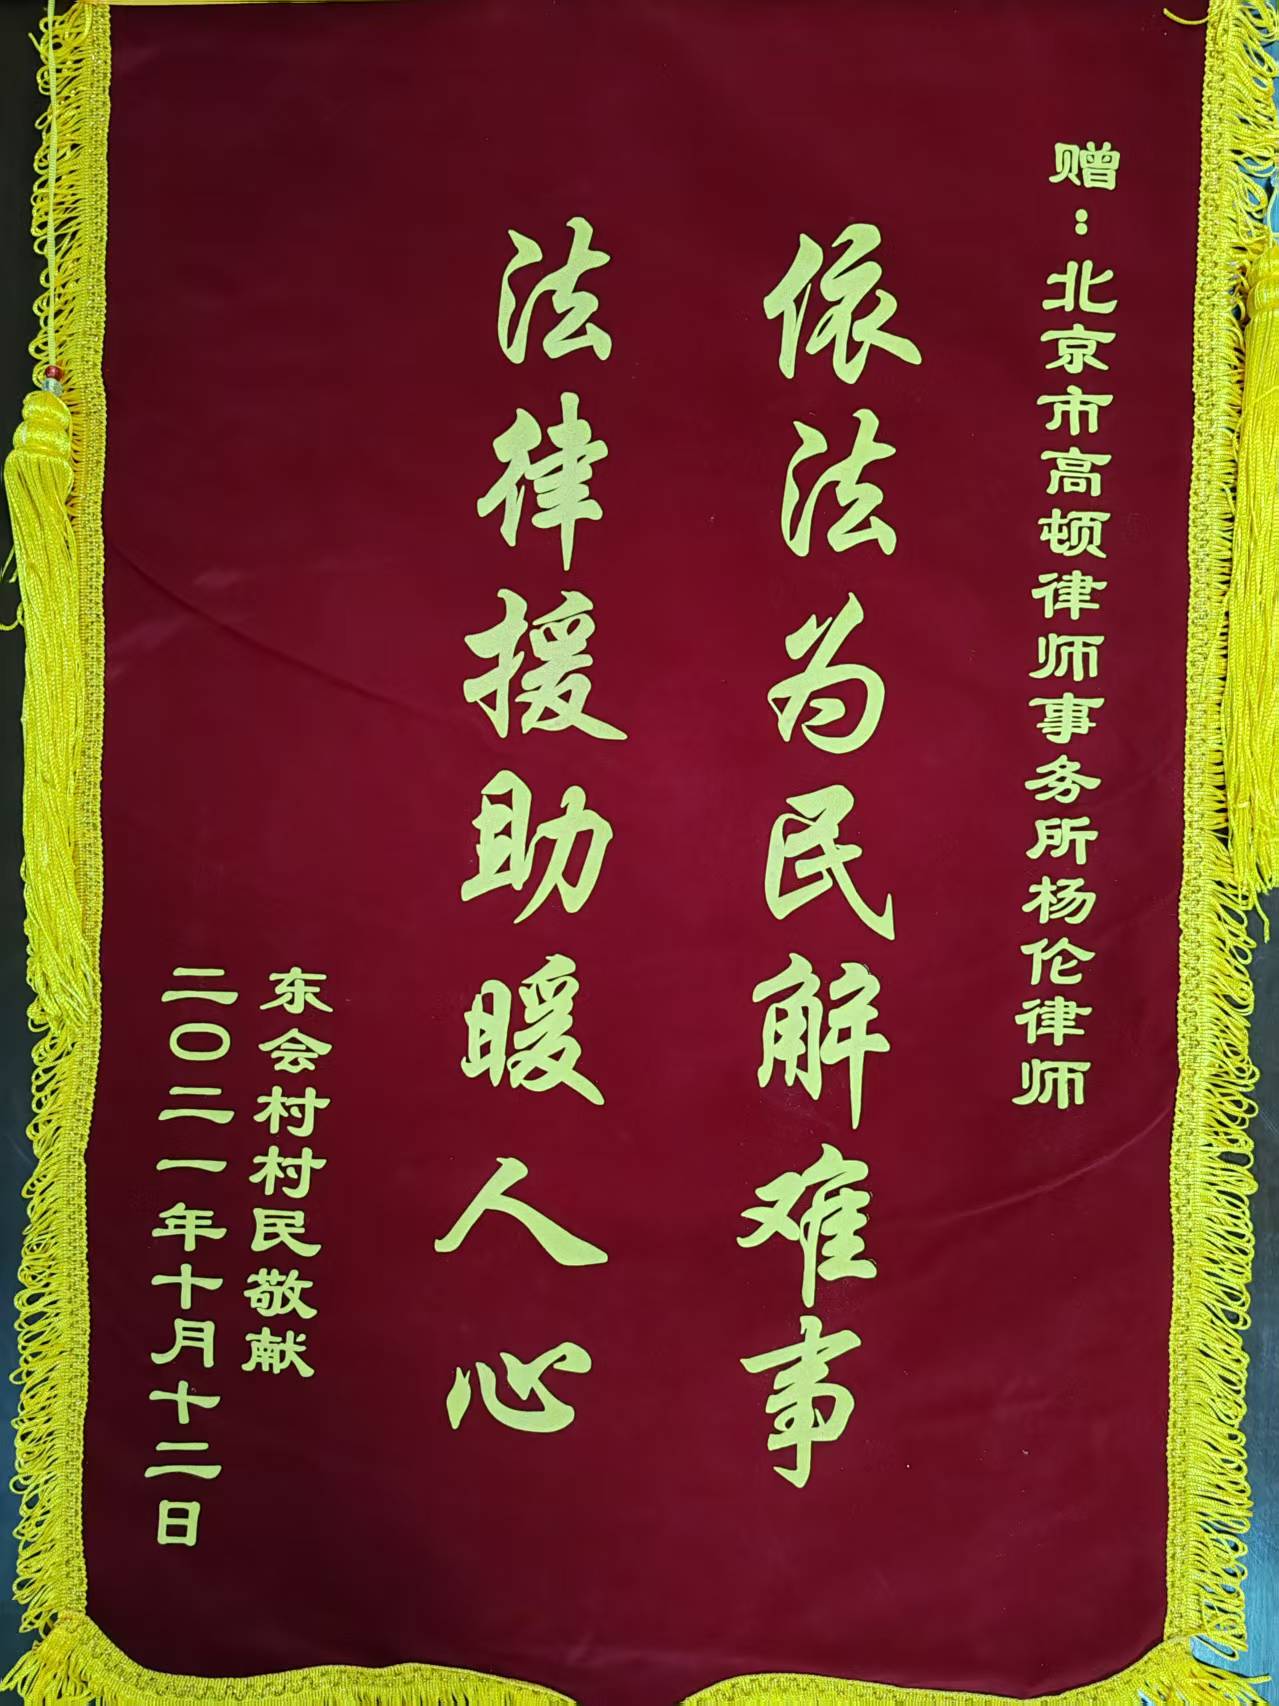 赠：北京市高顿律师事务所杨伦律师
依法为民解难事
法律援助暖人心
东会村村民敬献
二〇二一年十月十二日